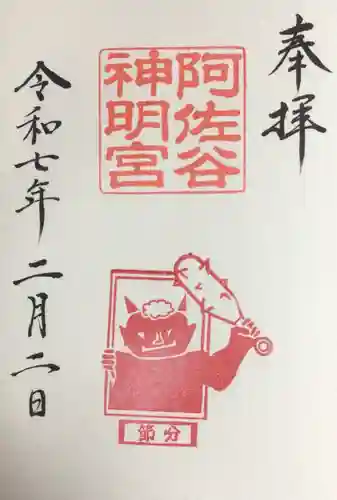 奉拝
阿佐谷
神明宮
節分
令和七年二月二日